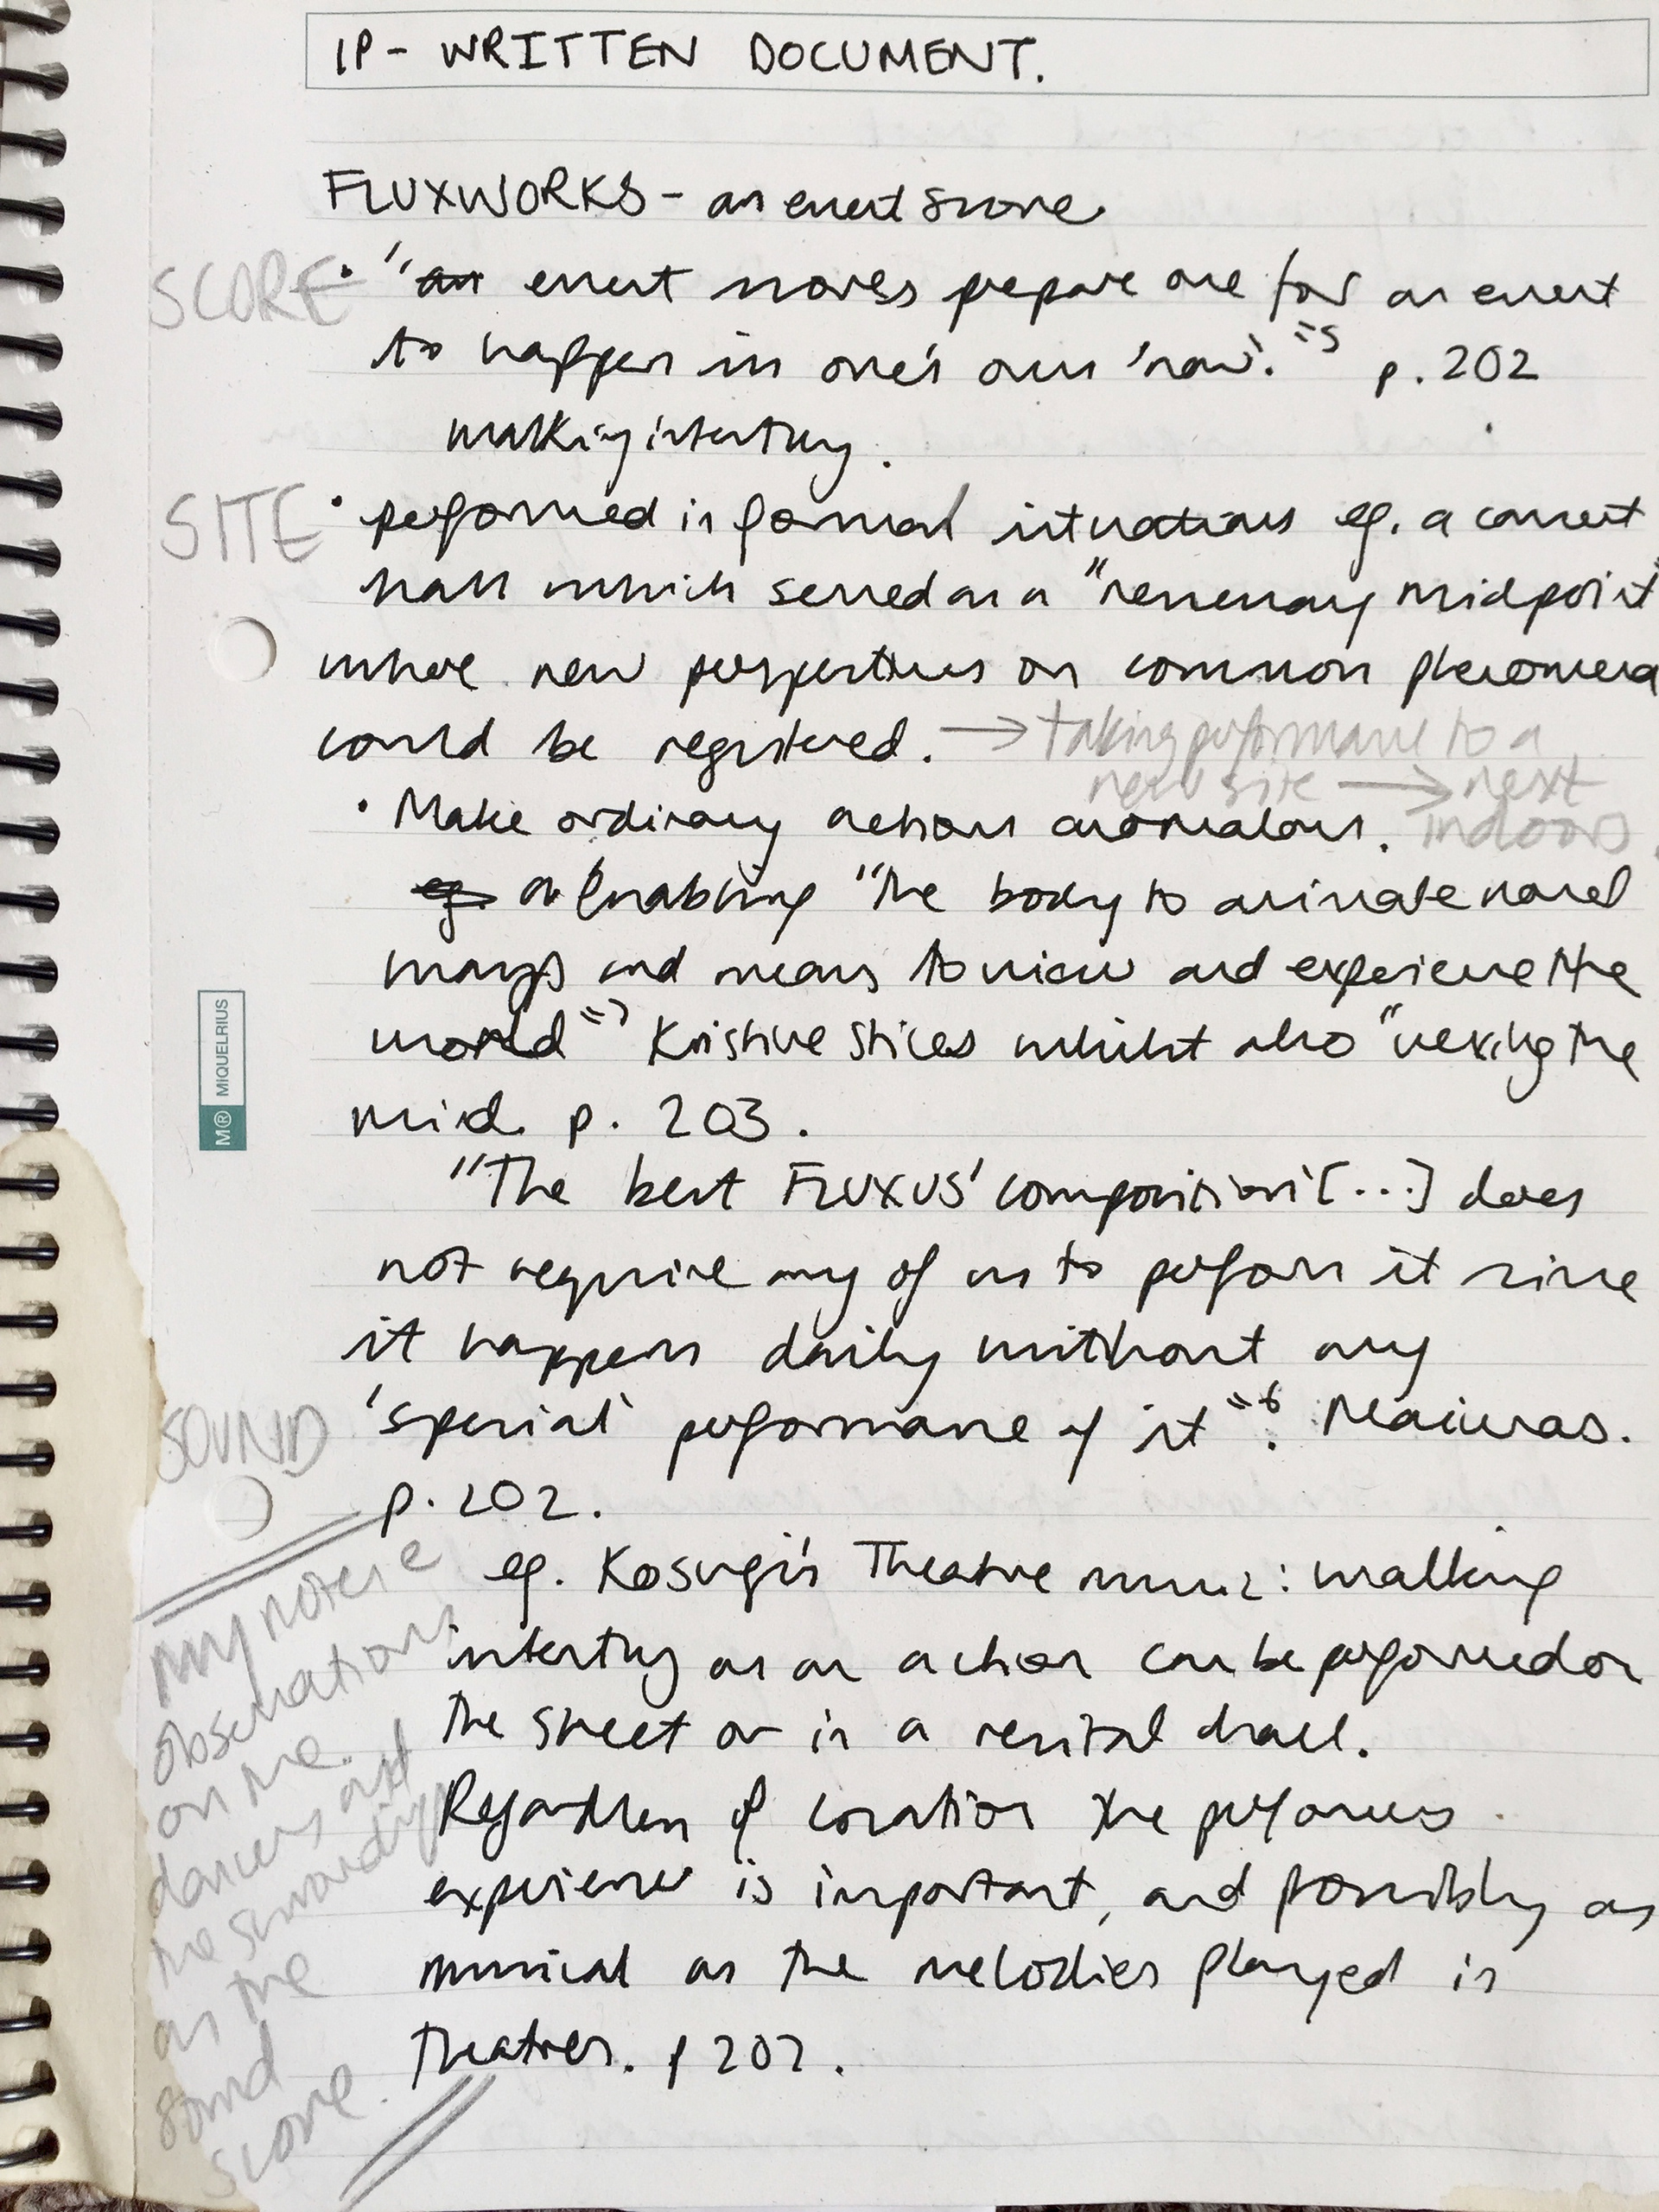 IP - WRITTEN DOCUMENT.
FLUXWORKS - an event score
SCORE
• "an event scores prepare one for an event
to happen in one's own 'now'."5 p. 202
walking intently.
SITE
• performed in formal situations eg. a concert
hall which served as a "necessary midpoint"
where new perspectives on common phenomena
could be registered. → taking performance to a
new site → next
indoors.
• Make ordinary actions anomalous.
eg. or Enabling "the body to animate novel
ways and means to view and experience the
world"7 Kristine Stiles whilst also "vexing the
mid. p. 203.
"The best FLUXUS 'composition' [...] does
not require any of us to perform it since
it happens daily without any
SOUND
'special' performance of it"6. Maciunas.
p. 202.
eg. Kosugi's Theatre music: walking
intently as an action can be performed on
the street or in a recital hall.
Regardless of location the performers
experience is important, and possibly as
musical as the melodies played in
theatres. p 202.
my notes
observations
on the
dancers and
the surroundings
as the
sound
score.
M® MIQUELRIUS